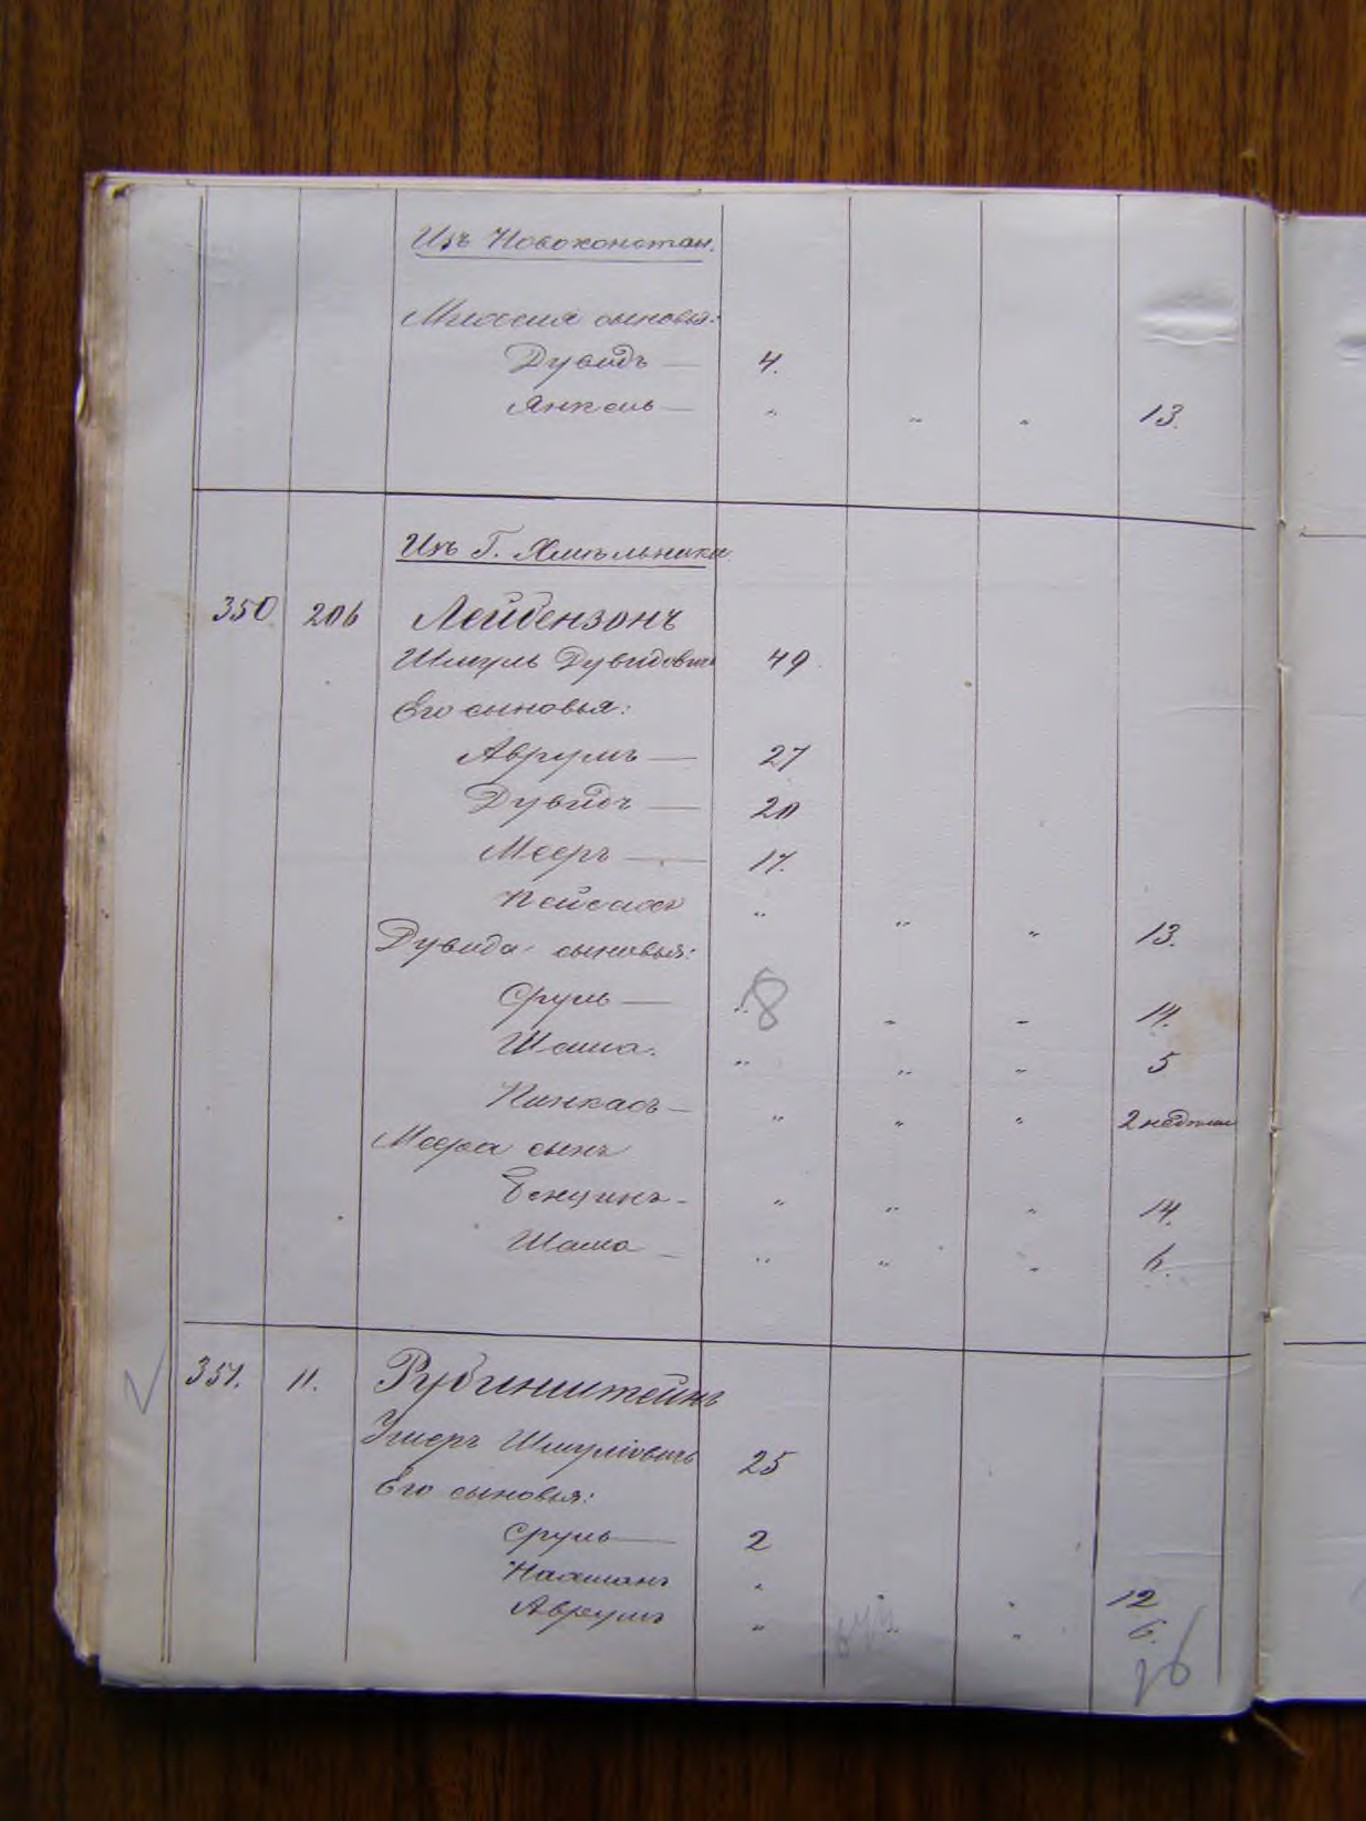 Изъ Новоконстан.
сыновья:
Дувидъ — 4.
Янкель — " " " 13.
Изъ Г. Хмѣльника
350 206 Лейбензонъ
Шмуль Дувидовичъ 49.
Его сыновья:
Аврумъ — 27
Дувидъ — 20
Мееръ — 17.
Пейсахъ " " " 13.
Дувида сыновья:
Сруль — " 8 - - 14.
Шама. " " " 5
Пинкасъ — " " " 2 недѣли
Меера сынъ
Бенционъ - " " " 14.
Шама — " " " 6.
351. 11. Рубинштейнъ
Ушеръ Шмулiовичъ 25
Его сыновья:
Сруль — 2
Нахманъ " " " 12
Аврумъ " " " 6.